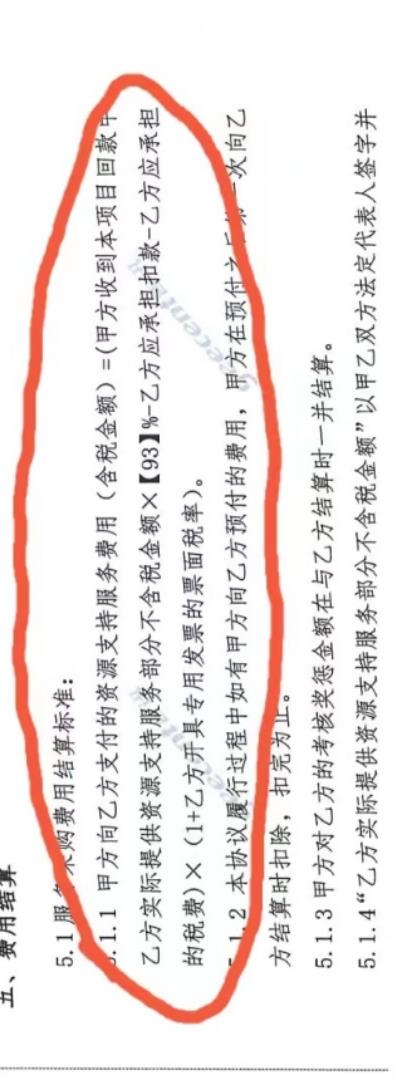 五、费用结算
5.1 服务采购费用结算标准：
5.1.1 甲方向乙方支付的资源支持服务费用（含税金额）=(甲方收到本项目回款中
乙方实际提供资源支持服务部分不含税金额×【93】%-乙方应承担扣款-乙方应承担
的税费)×（1+乙方开具专用发票的票面税率）。
5.1.2 本协议履行过程中如有甲方向乙方预付的费用，甲方在预付之后第一次向乙
方结算时扣除，扣完为止。
5.1.3 甲方对乙方的考核奖惩金额在与乙方结算时一并结算。
5.1.4“乙方实际提供资源支持服务部分不含税金额”以甲乙双方法定代表人签字并
geecentury
geecentury